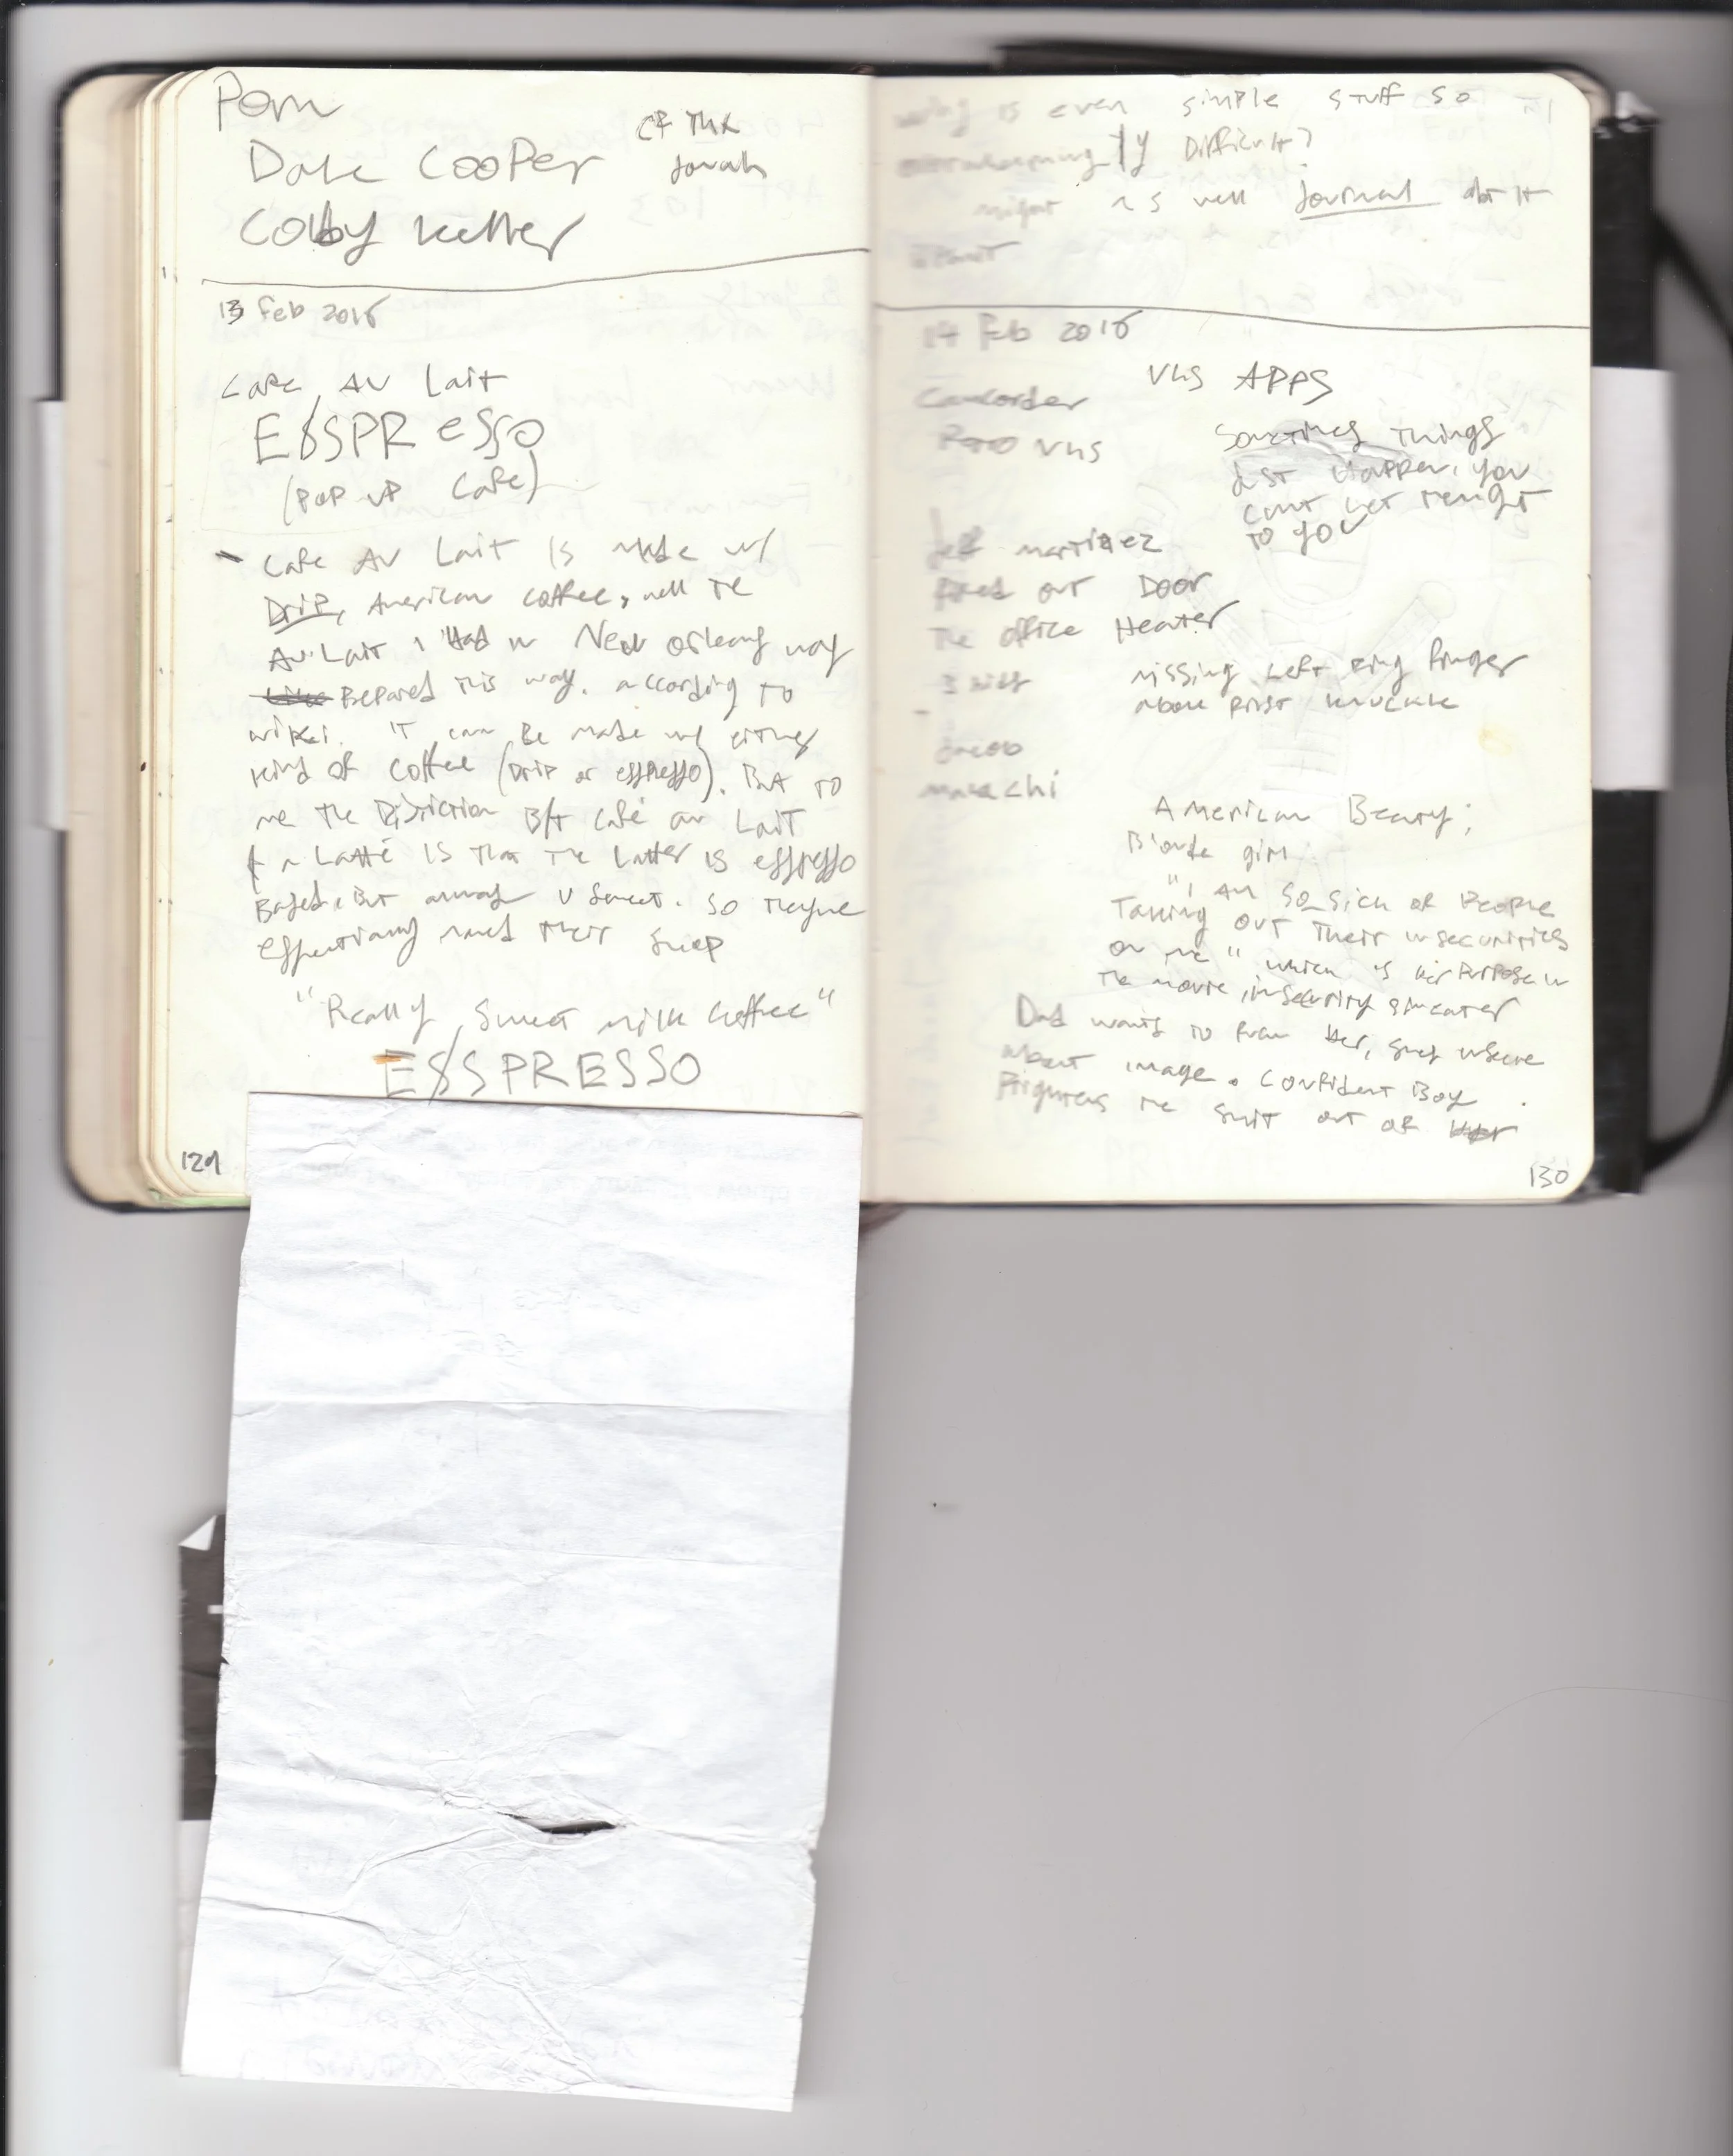 Porn
CF The
Jonah
Dale Cooper
Colby Keller
13 Feb 2016
Cafe Au Lait
ESSPRESSO
(POP UP Cafe)
- Cafe Au Lait is made w/
Drip, American coffee, well the
Au Lait I had in New Orleans was
Prepared this way. according to
wiki. it can be made w/ either
kind of coffee (Drip or esspresso). But to
me the Distinction B/t Café au Lait
& a Latté is that the latter is esspresso
Based, But always v sweet. So they've
essentially named their shop
"Really Sweet milk coffee"
ESSPRESSO
129
why is even simple stuff so
overwhelmingly Difficult?
might as well Journal abt it
14 Feb 2016
VHS APPS
Camcorder
VHS
Sometimes Things
Just Happen, you
can't let them get
to you
Jeff Martinez
out Door
The office Heater
missing Left ring finger
above first knuckle
Jacob
Malachi
American Beauty;
Blonde girl
"I am So Sick of People
Taking out Their insecurities
on me" which is her Purpose in
The movie, insecurity
Dad wants to her, she's insecure
about image. Confident Boy
Frightens the shit out of her
130